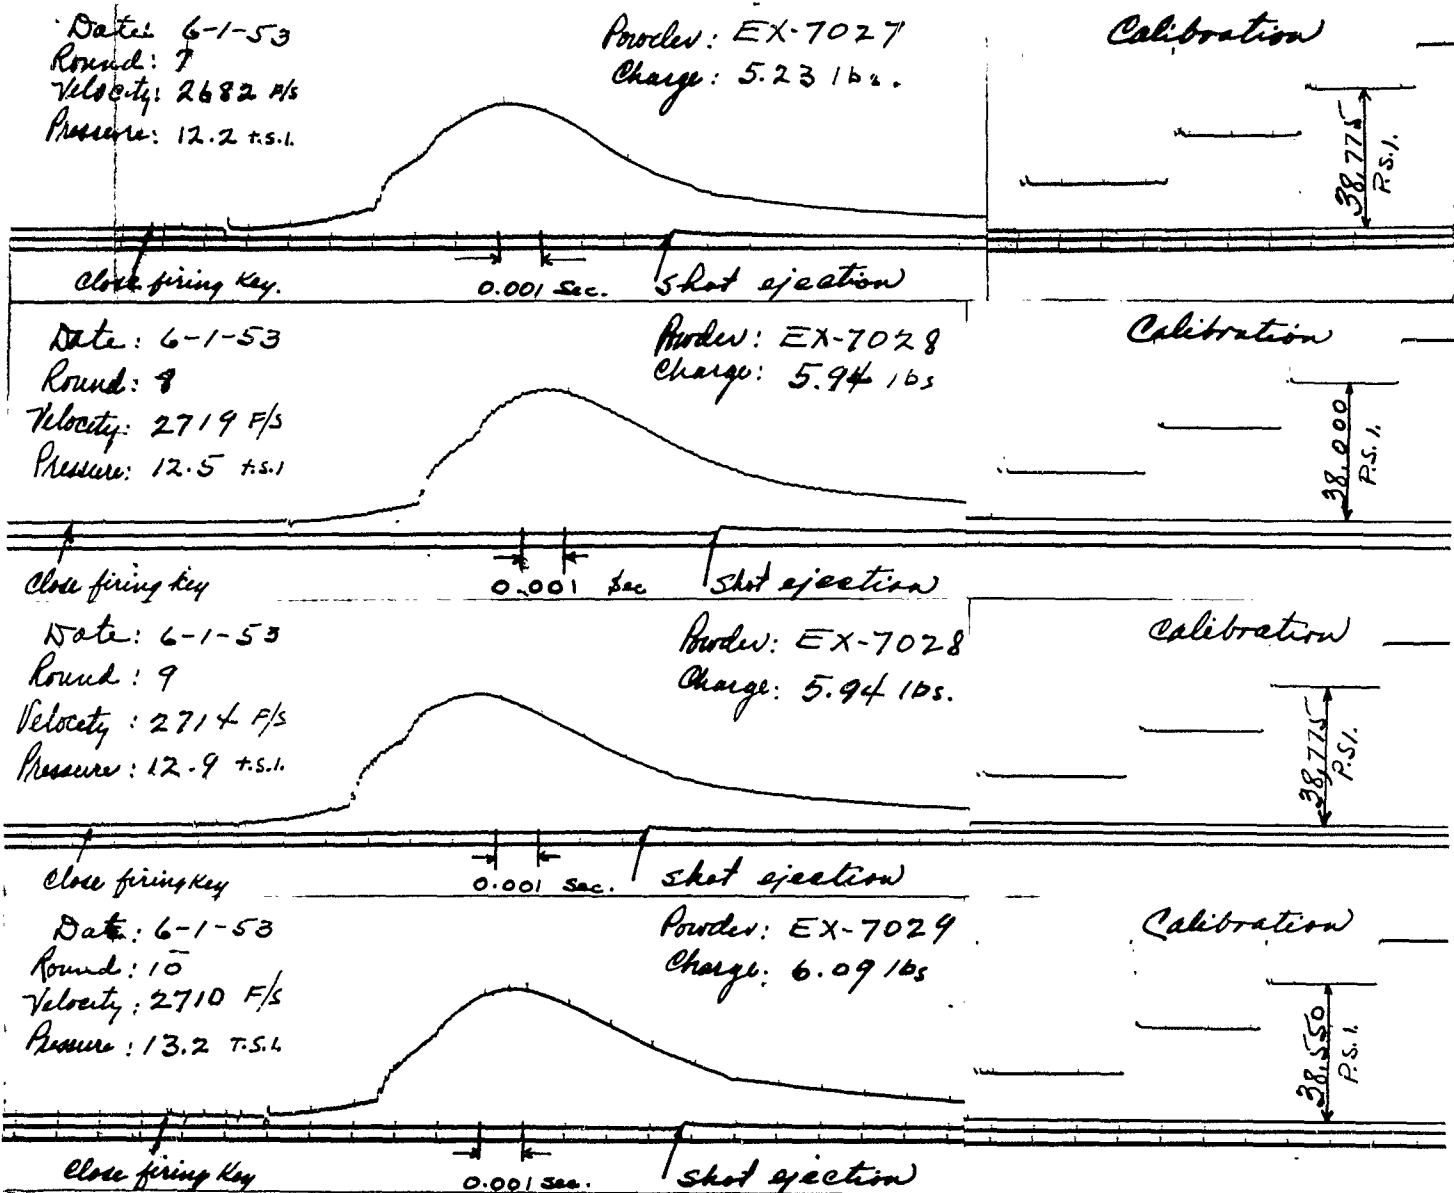 Date: 6-1-53
Round: 7
Velocity: 2682 F/S
Pressure: 12.2 t.s.i.
Powder: EX-7027
Charge: 5.23 lbs.
Calibration
38,775
P.S.I.
Close firing Key.
0.001 Sec.
shot ejection
Date: 6-1-53
Round: 8
Velocity: 2719 F/S
Pressure: 12.5 t.s.i
Powder: EX-7028
Charge: 5.94 lbs
Calibration
38,000
P.S.I.
Close firing key
0.001 Sec
shot ejection
Date: 6-1-53
Round: 9
Velocity: 2714 F/S
Pressure: 12.9 t.s.i.
Powder: EX-7028
Charge: 5.94 lbs.
Calibration
38,775
P.S.I.
Close firing key
0.001 Sec.
shot ejection
Date: 6-1-53
Round: 10
Velocity: 2710 F/S
Pressure: 13.2 T.S.I.
Powder: EX-7029
Charge: 6.09 lbs
Calibration
38,550
P.S.I.
Close firing Key
0.001 sec.
shot ejection